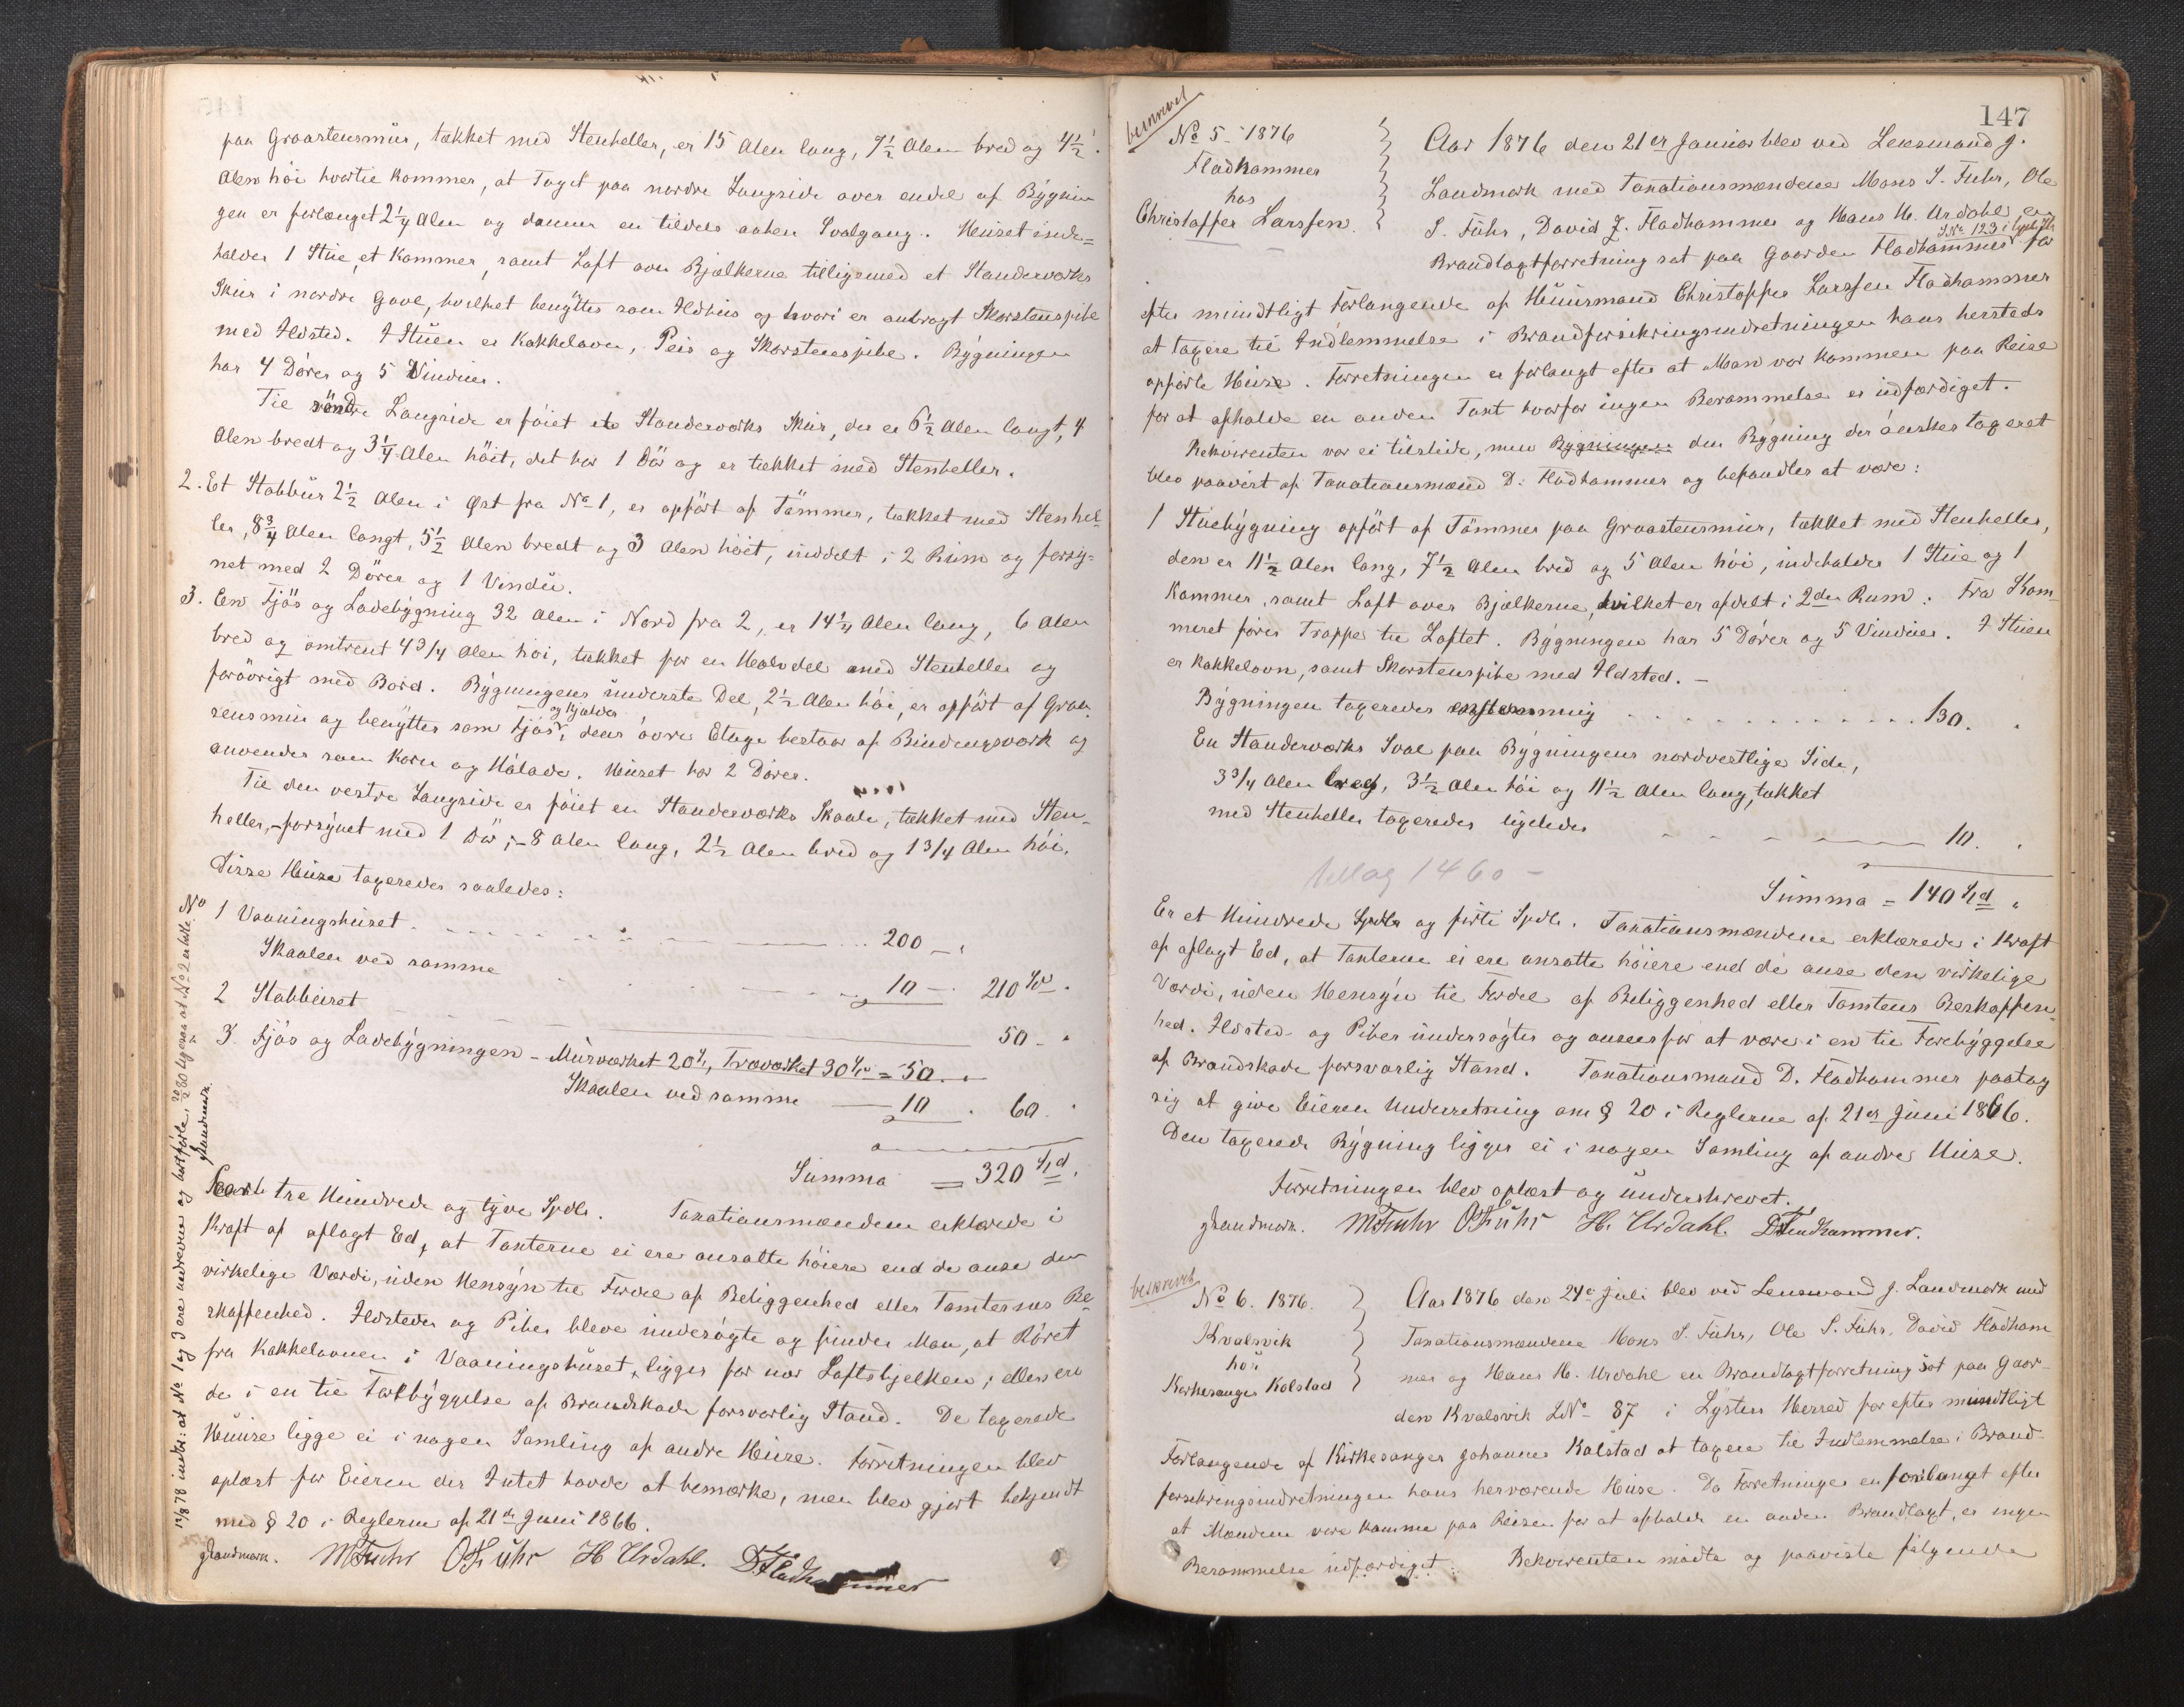 paa Graastensmuur, tækket med Stenheller, er 15 Alen lang, 7½ Alen bred og 4½
Alen høi hvortil kommer, at Taget paa nordre Langside over endel af Bygnin
gen er forlænget 2¼ Alen og danner en tildels aaben Svalgang. Huset inde=
holder 1 Stue, et Kammer, samt Loft over Bjælkerne tilligemed et Standerværks
Skur i nordre Gavl, hvilket benyttes som Ildhus og hvori er anbragt Skorstenspibe
med Ildsted. I Stuen er Kakkelovn, Peis og Skorstenspibe. Bygningen
har 4 Dører og 5 Vinduer.
Til søndre Langside er føiet et Standerværks Skur, der er 6½ Alen langt, 4
Alen bredt og 3¼ Alen høit, det har 1 Dør og er tækket med Stenheller.
2. Et Stabbur 2½ Alen i Øst fra No 1, er opført af Tømmer, tækket med Stenhel=
ler, 8¾ Alen langt, 5½ Alen bredt og 3 Alen høit, inddelt i 2 Rum og forsy=
net med 2 Dører og 1 Vindu.
3. En Fjøs og Ladebygning 32 Alen i Nord fra 2, er 14¼ Alen lang, 6 Alen
bred og omtrent 4 3/4 Alen høi, tækket for en Halvdel med Stenheller og
forøvrigt med Bord. Bygningens underste Del, 2½ Alen høi, er opført af Graa
stensmur og benyttes som Fjøs og Kjelder, dens øvre Etage bestaar af Bindingsværk og
anvendes som Korn og Hølade. Huset har 2 Dører.
Til den vestre Langside er føiet en Standerværks Skaale, tækket med Sten-
heller, forsynet med 1 Dør; 8 Alen lang, 2½ Alen bred og 1 3/4 Alen høi.
Disse Huse taxeredes saaledes:
No
1 Vaaningshuset 200 -
Skaalen ved samme 10 - 210 Spd.
2 Stabburet 50 -
3. Fjøs og Ladebygningen - Murværket 20, Træværket 30 = 50.
Skaalen ved samme 10 . 60.
Summa = 320 Spd.
tre Hundrede og tyve Spdlr. Taxationsmændene erklærede i
Kraft af aflagt Ed, at Taxterne ei ere ansatte høiere end de anse den
virkelige Værdi, uden Hensyn til Fordel af Beliggenhed eller Tomternes Be
skaffenhed. Ildsteder og Piber bleve undersøgte og finder Man, at Røret
fra Kakkelovnen i Vaaningshuset, ligger for nær Loftsbjelken; ellers ere
de i en til Forebyggelse af Brandskade forsvarlig Stand. De taxerede
Huuse ligge ei i nogen Samling af andre Huse. Forretningen blev
oplæst for Eieren der Intet havde at bemærke, men blev gjort bekjendt
med § 20 i Reglerne af 21de Juni 1866.
JLandmark. MFuhr OSFuhr H Urdahl. DFladhammer
12/8 78 indbr: at No 1 og 3 ere nedrevne og bortførte 20/2 80 ligesaa at No 2 er
JLandmark.
147
beskrevet
No 5 - 1876
Fladhammer
hos
Christoffer Larssen.
Aar 1876 den 21de Januar blev ved Lensmand J.
Landmark med Taxationsmændene Mons S. Fuhr, Ole
S. Fuhr, David J. Fladhammer og Hans H. Urdahl en
Brandtaxtforretning sat paa Gaarden Fladhammer LNo 123 i for
efter mundtligt Forlangende af Huusmand Christoffer Larssen Fladhammer
at taxere til Indlemmelse i Brandforsikringsindretningen hans hersteds
opførte Huse. Forretningen er forlangt efter at Man var kommen paa Reise
for at afholde en anden Taxt hvorfor ingen Berammelse er udfærdiget.
Rekvirenten var ei tilstede, men Bygningen den Bygning der ønskes taxeret
blev paavist af Taxationsmand D. Fladhammer og befandtes at være:
1 Stuebygning opført af Tømmer paa Graastensmur, tækket med Stenheller,
den er 11½ Alen lang, 7½ Alen bred og 5 Alen høi, indeholder 1 Stue og 1
Kammer, samt Loft over Bjælkerne, hvilket er afdelt i 2de Rum. Fra Kam
meret fører Trappe til Loftet. Bygningen har 5 Dører og 5 Vinduer. I Stuen
er Kakkelovn, samt Skorstenspibe med Ildsted. -
Bygningen taxeredes enstemmig 130.
En Standerværks Sval paa Bygningens nordvestlige Side,
3 3/4 Alen bred, 3½ Alen høi og 11½ Alen lang, tækket
med Stenheller taxeredes ligeledes 10.
1460 -
Summa = 140 Spd
Er et Hundrede Spdlr og firti Spdlr. Taxationsmændene erklærede i Kraft
af aflagt Ed, at Taxterne ei ere ansatte høiere end de anse den virkelige
Værdi, uden Hensyn til Fordel af Beliggenhed eller Tomtens Beskaffen
hed. Ildsted og Piber undersøgtes og ansees for at være i en til Forebyggelse
af Brandskade forsvarlig Stand. Taxationsmand D. Fladhammer paatog
sig at give Eieren Underretning om § 20 i Reglerne af 21de Juni 1866.
Den taxerede Bygning ligger ei i nogen Samling af andre Huse.
Forretningen blev oplæst og underskrevet.
JLandmark. MFuhr OSFuhr H. Urdahl. DFladhammer.
beskrevet
No 6. 1876.
Kvalsvik
hos
Kirkesanger Kolstad
Aar 1876 den 24de Juli blev ved Lensmand J. Landmark med
Taxationsmændene Mons S. Fuhr, Ole S. Fuhr, David Fladham
mer og Hans H. Urdahl en Brandtaxtforretning sat paa Gaar-
den Kvalsvik LNo 87 i Lysters Herred for efter mundtligt
Forlangende af Kirkesanger Johannes Kolstad at taxere til Indlemmelse i Brand-
forsikringsindretningen hans herværende Huse. Da Forretningen er forlangt efter
at Mændene vare komne paa Reisen for at afholde en anden Brandtaxt, er ingen
Berammelse udfærdiget. Rekvirenten mødte og paaviste følgende